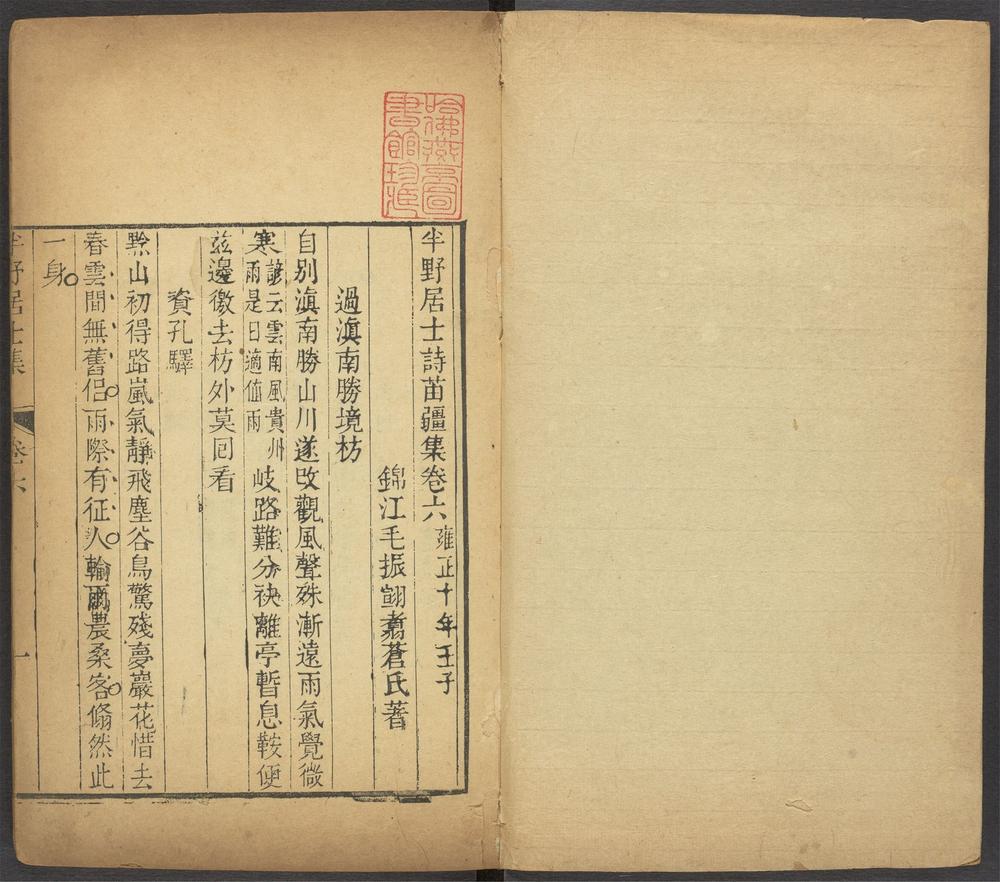 哈佛燕京圖
書館珍藏
半野居士詩苗疆集卷六雍正十年壬子
錦江毛振翧翥蒼氏著
過滇南勝境枋
自别滇南勝山川遂改觀風聲殊漸遠雨氣覺微
寒諺云雲南風貴州雨是日適值雨岐路難分袂離亭暫息鞍便
兹邊徼去枋外莫回看
資孔驛
黔山初得路嵐氣靜飛塵谷鳥驚殘夢巖花惜去
春雲間無舊侣雨際有征人輪 農桑客翛然此
一身
半野居士集 卷六 一